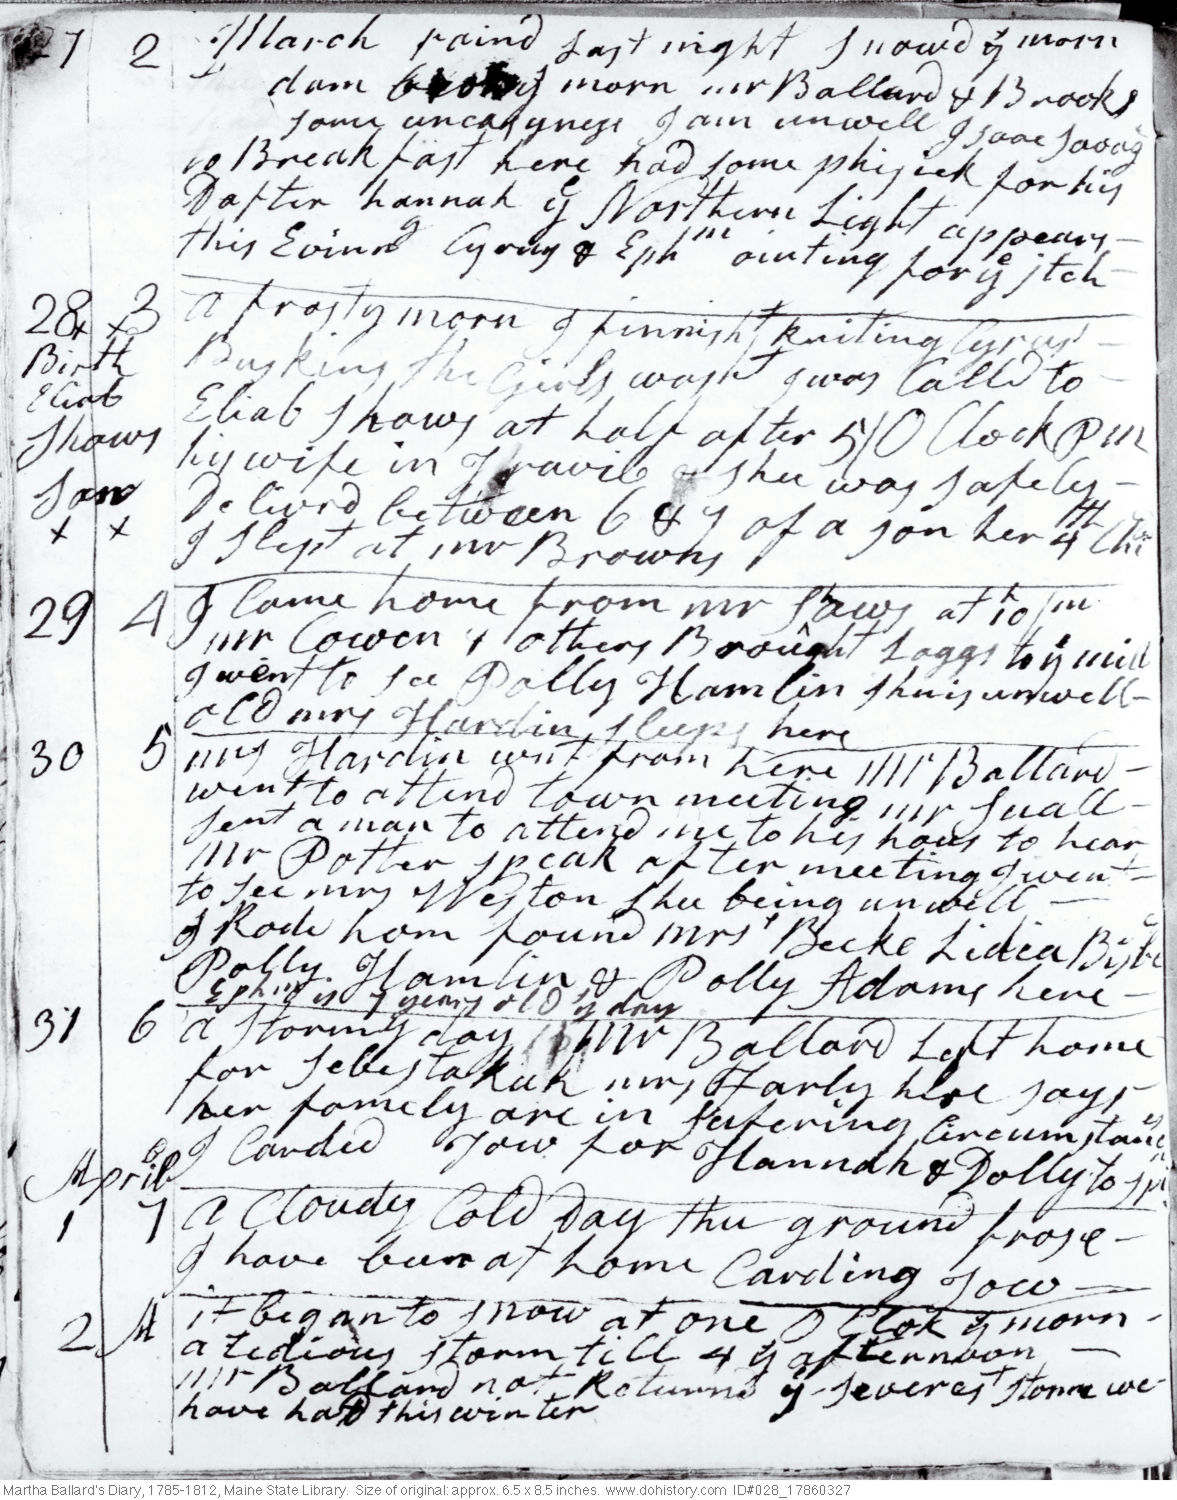 27 2 March raind Last night Snowd ÿ morn
dam broky morn mr Ballard & Brooks
some uneasyness I am unwell Isaac Savag
to Breakfast here had some phisick for his
Dafter hannah ÿ Northern Light appears –
this Evinng Cyrus & Ephm ointing for ÿ itch –
28 3 a frosty morn I finnisht kniting Cyrus' –
Birth Buskins the Girls washt I was Calld to –
Eliab Eliab Shaws at half after 5/0 Clock P m
Shaws his wife in Travil & shee was safely –
Son Delivrd between 6 & 7 of a son her 4th Chi
x x I slept at mr Browns
29 4 I Came home from mr Shaws at 10 / m
mr Cowen & others Brought Loggs to ÿ mill
I went to see Polly Hamlin shee is unwell –
old mrs Hardin sleeps here
30 5 mrs Hardin wnt from here mr Ballard –
went to attend town meeting mr Suall –
sent a man to attend me to his hous to hear
mr Potter speak after meeting I went –
to see mrs Weston shee being unwell —
I Rode hom found mrs Becke Lidia
Polly Hamlin & Polly Adams here –
Ephm is 7 years old ÿ day
31 6 a stormy day mr Ballard Left home
for Sebestakuk mrs Harly here says –
her famely are in sufering Circumstanc
I Carded Tow for Hannah & Dolly to
April
1 7 a Cloudy Cold Day the ground frose –
I have been at home Carding Tow —
2 A it began to snow at one O Clok ÿ morn –
a tedious storm till 4 ÿ afternoon —
mr Ballard not Returnd ÿ severest storm we
have had this winter
Martha Ballard's Diary, 1785-1812, Maine State Library. Size of original: approx. 6.5 x 8.5 inches. www.dohistory.com ID#028_17860327